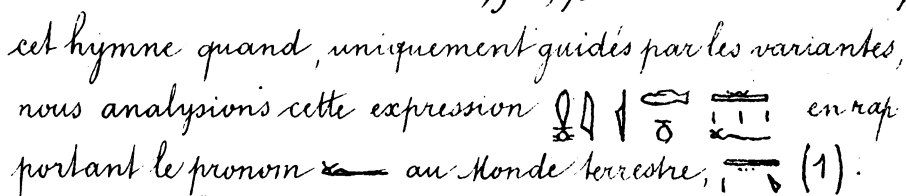 cet hymne quand, uniquement guidés par les variantes,
nous analysions cette expression en rap
portant le pronom 𓆑 au Monde terrestre, (1).